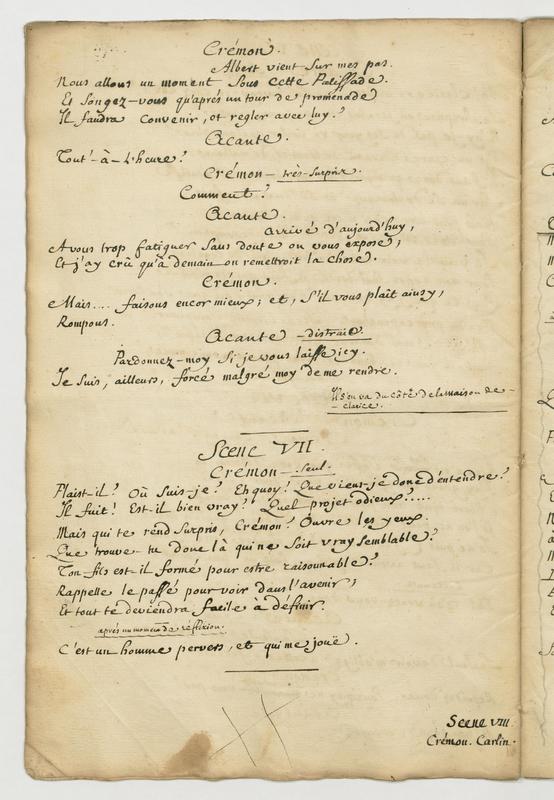 Crémon.
Albert vient sur mes pas.
Nous allons un moment sous cette Palissade.
Et songez-vous qu'aprés un tour de promenade
Il faudra convenir, et regler avec luy?
Acante.
Tout-à-L'heure?
Crémon - très-surpris.
Comment?
Acante.
arrivé d'aujourd'huy,
A vous trop fatiguer sans doute on vous expose;
Et j'ay crû qu'à demain on remettroit la chose.
Crémon.
Mais.... faisons encor mieux; et, s'il vous plaît ainsy,
Rompons.
Acante - distrait.
Pardonnez-moy si je vous laisse icy.
Je suis, ailleurs, forcé malgré moy de me rendre.
Il s'en va du côté de la maison de -
- clarice.
Scene VII.
Crémon - seul.
Plaist-il? Où suis-je? Eh quoy! Que viens-je donc d'entendre?
Il fuit! Est-il bien vray? Quel projet odieux?....
Mais qui te rend surpris, Crémon? Ouvre les yeux.
Que trouve-tu donc là qui ne soit vray semblable?
Ton fils est-il formé pour estre raisonnable?
Rappelle le passé pour voir dans l'avenir;
Et tout te deviendra facile à définir.
aprés un moment de réflexion.
C'est un homme pervers, et qui me jouë.
Scene VIII.
Crémon. Carlin.